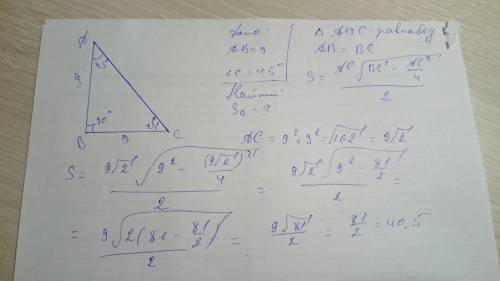 A
45
9
90°
B
9
C
Дано:
AB=9
∠C=45°
Найти:
S△=?
△ABC-равнобед
AB=BC
S=\frac{AC\sqrt{BC²-\frac{AC²}{4}}}{2}
AC=9²+9²=√162=9√2
S=\frac{9√2\sqrt{9²-\frac{(9√2)²}{4}}}{2}=\frac{9√2\sqrt{9²-\frac{81}{2}}}{2}=
=\frac{9\sqrt{2(81-\frac{81}{2})}}{2}=\frac{9√81}{2}=\frac{81}{2}=40,5